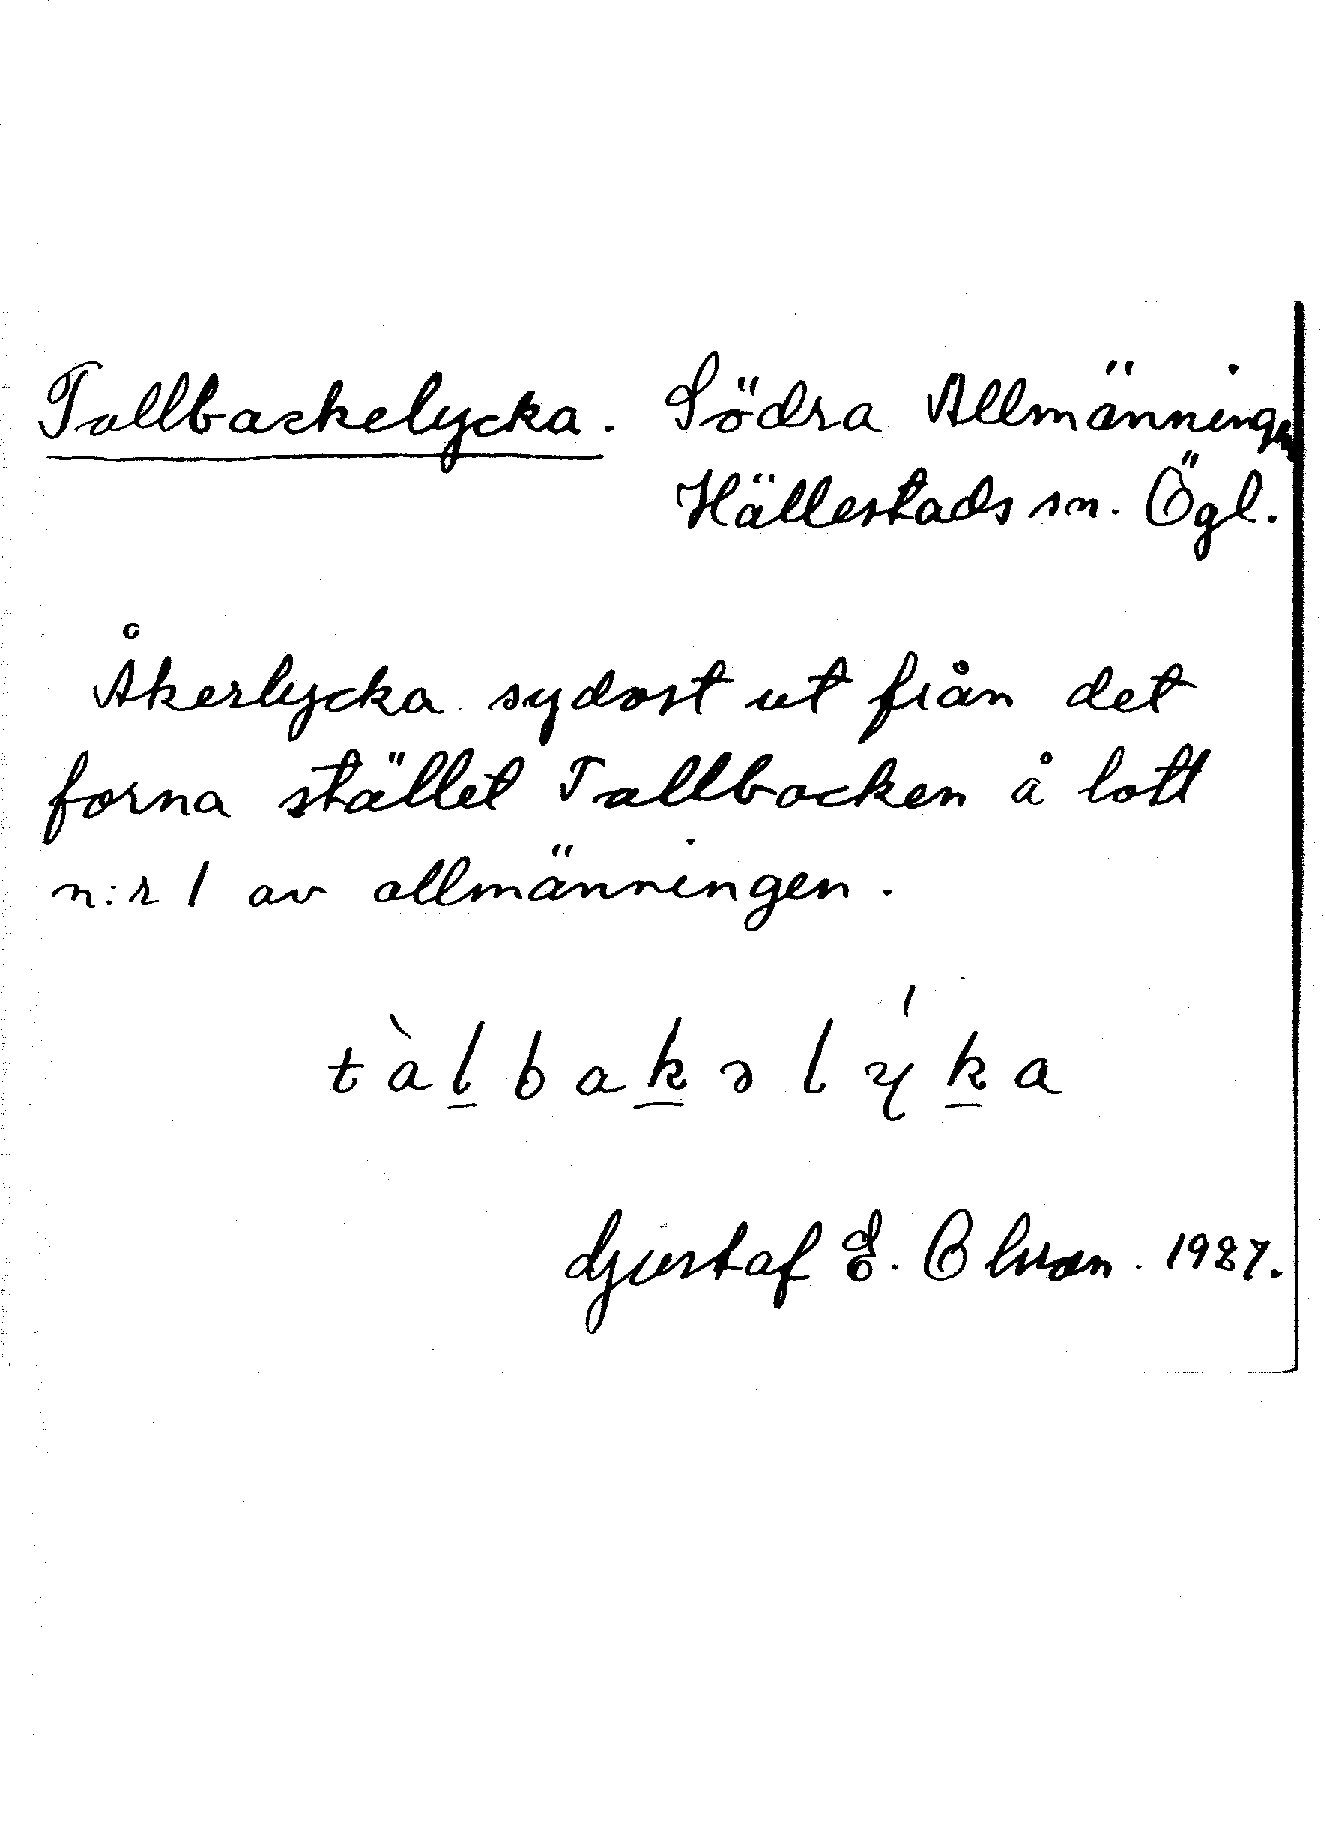 Tallbackelycka. Södra Allmänningen
Hällestads sn. Ögl.
Åkerlycka sydost ut från det
forna stället Tallbacken å lott
n:r 1 av allmänningen.
tàl̲bak̲əlýk̲a
Gustaf E. Olsson. 1987.